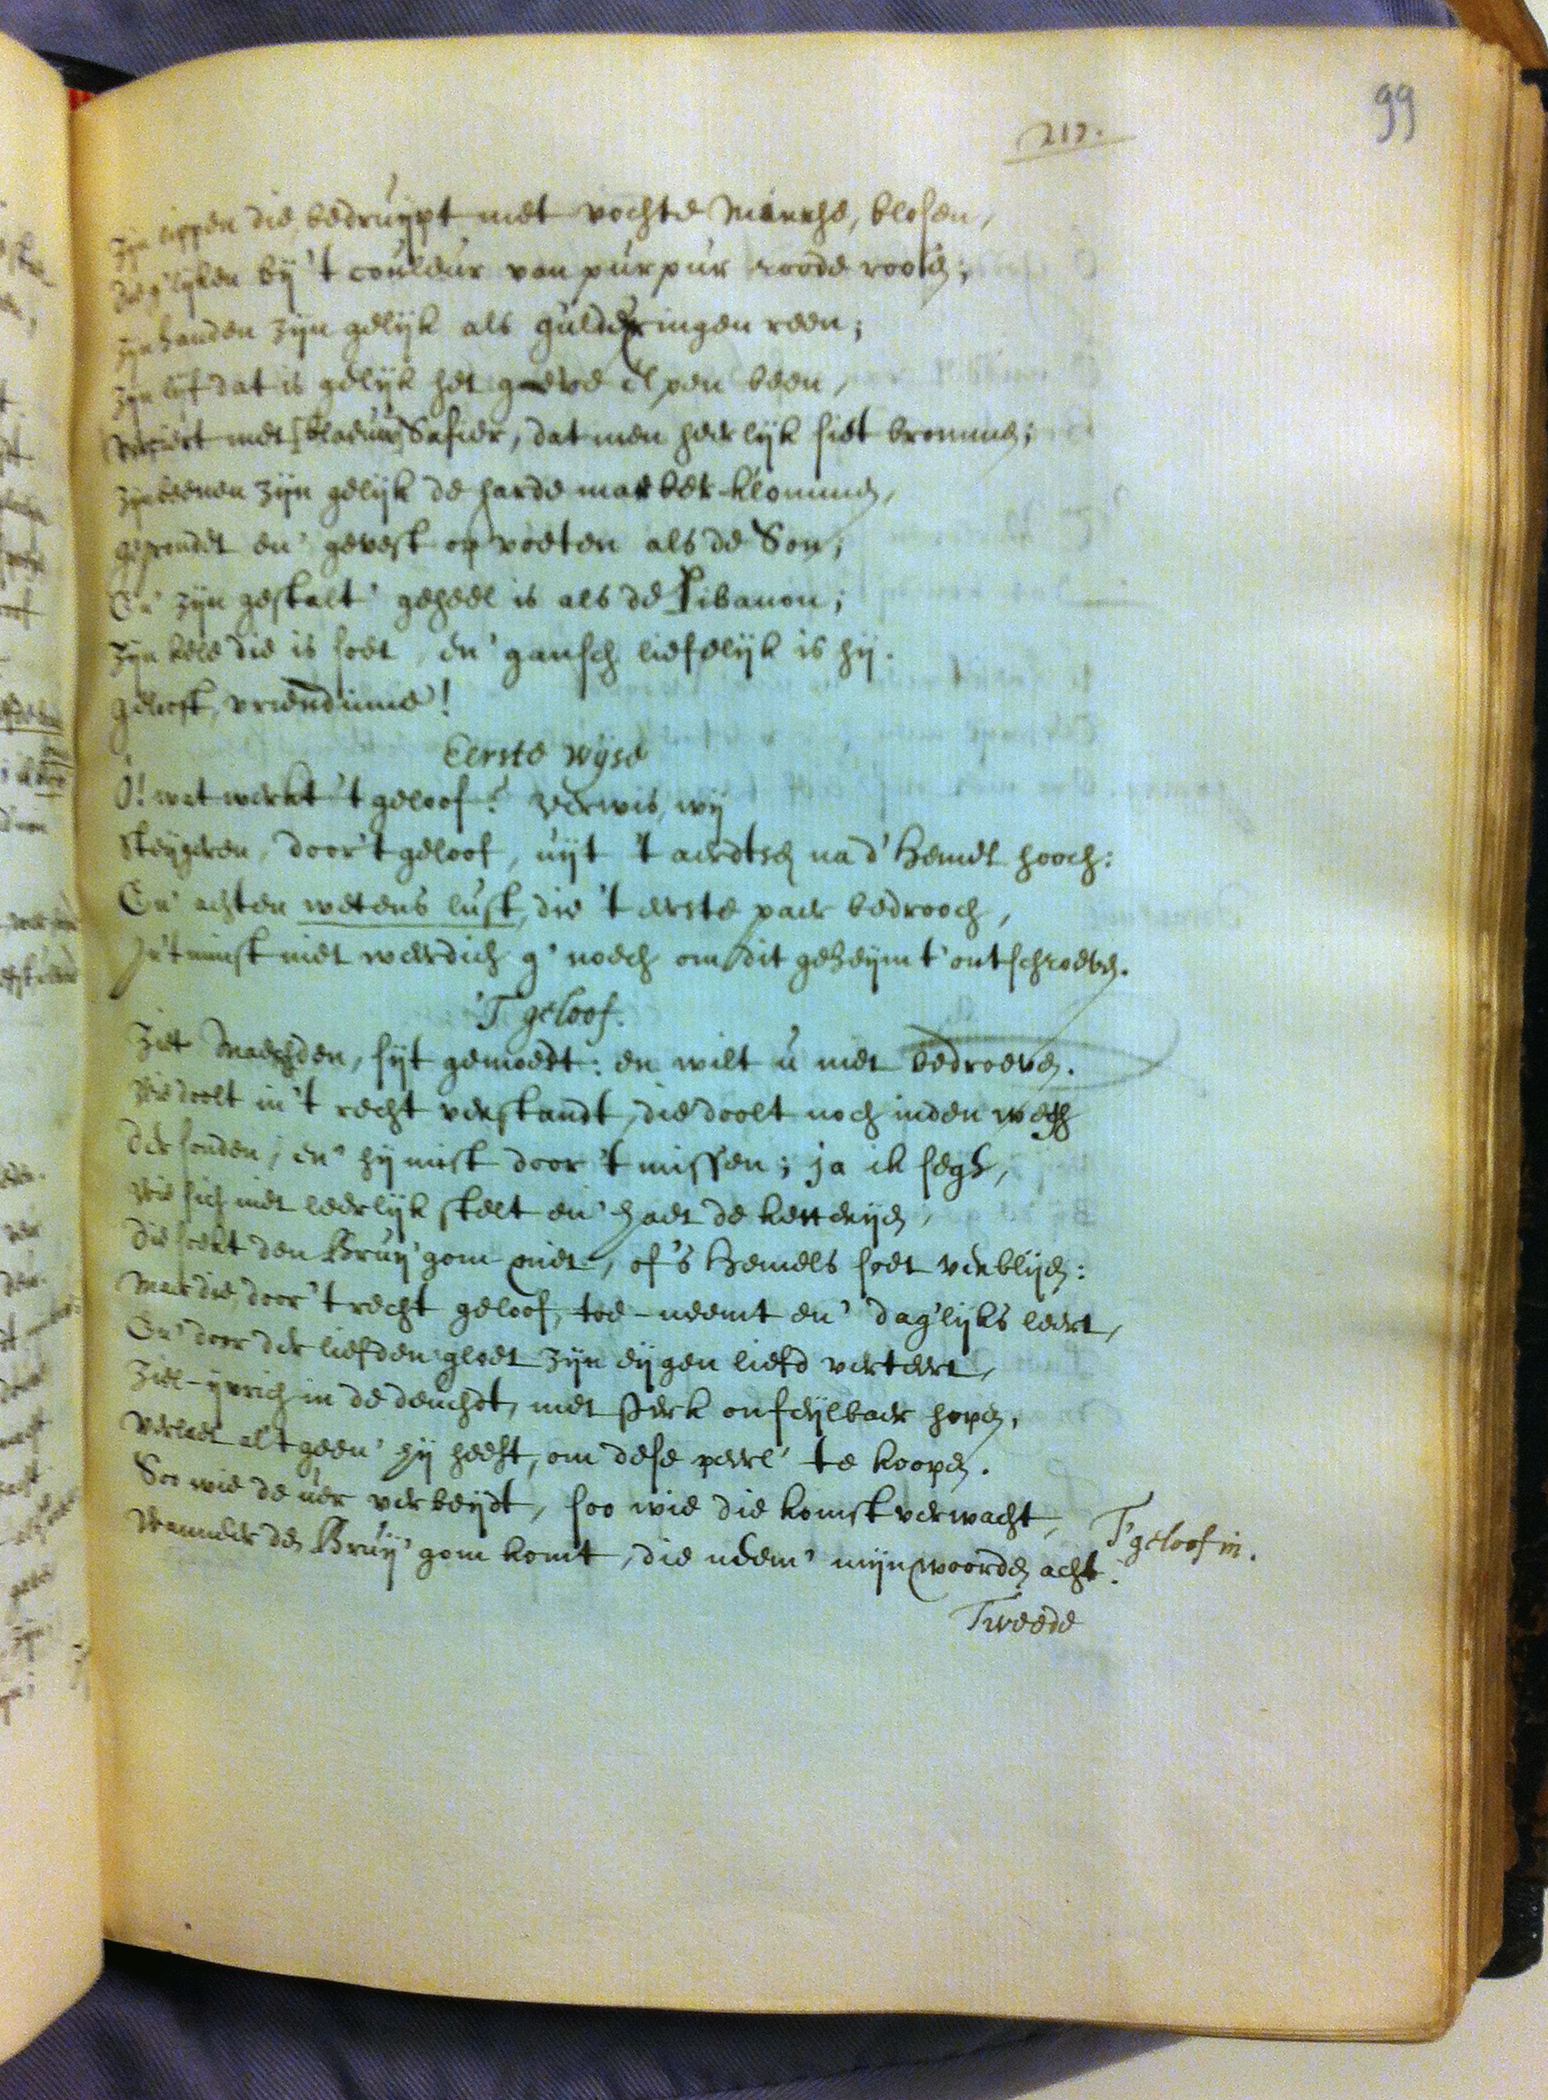 99
217.
Zijn lippen die, bedruijpt met vochte Mirrhe, blosen,
die g'lijken bij 't couleur van purpur roode roosen;
zijn handen zijn gelijk als gulde ringen reen;
zijn lijf dat is gelijk het gaeve elpen been,
verciert met [blaeuw] Safier, dat men heerlijk siet brommen;
zijn beenen zijn gelijk de harde marber-klommen,
gegrondet en' gevest op voeten als de Son;
En' zijn gestalt' geheel is als de Libanon;
zijn keele die is soet, en' gansch liefelijk is hij.
geloofft, vriendinne!
Eerste wijse
O! wat werkt 't geloof? verwis, wij
steijgeren, door 't geloof, uijt 't aerdtsch na d'hemel hooch:
En' achten wetens lust, die 't eerste paer bedrooch,
In 't minst niet weerdich g'noech om dit geheijm t' ontschroeven.
'T geloof.
Ziet Maeghden, sijt gemoedt: en wilt u niet bedroeven.
Wie doolt in 't recht verstandt, die doolt noch in den wegh
der sonden; en' hij mist door 't missen; ja ik segh,
wie sich niet leerlijk stelt en' haet de ketterijen,
die soekt den Bruij'gom niet, of 's hemels soet verblijen:
Maer die, door 't recht geloof, toe-neemt en' dag'lijks leert,
En' door der liefden gloet zijn eijgen liefd verteert,
Ziel-ijvrich in de deuchdt, met sterk onfeijlbaer hopen,
verlaet al 't geen' hij heeft, om dese peerl' te koopen.
Soo wie de uer verbeijdt, soo wie die komst verwacht,
Wanneer den Bruij'gom komt, die neem' mijn woorden acht.
T'geloof in.
Tweede